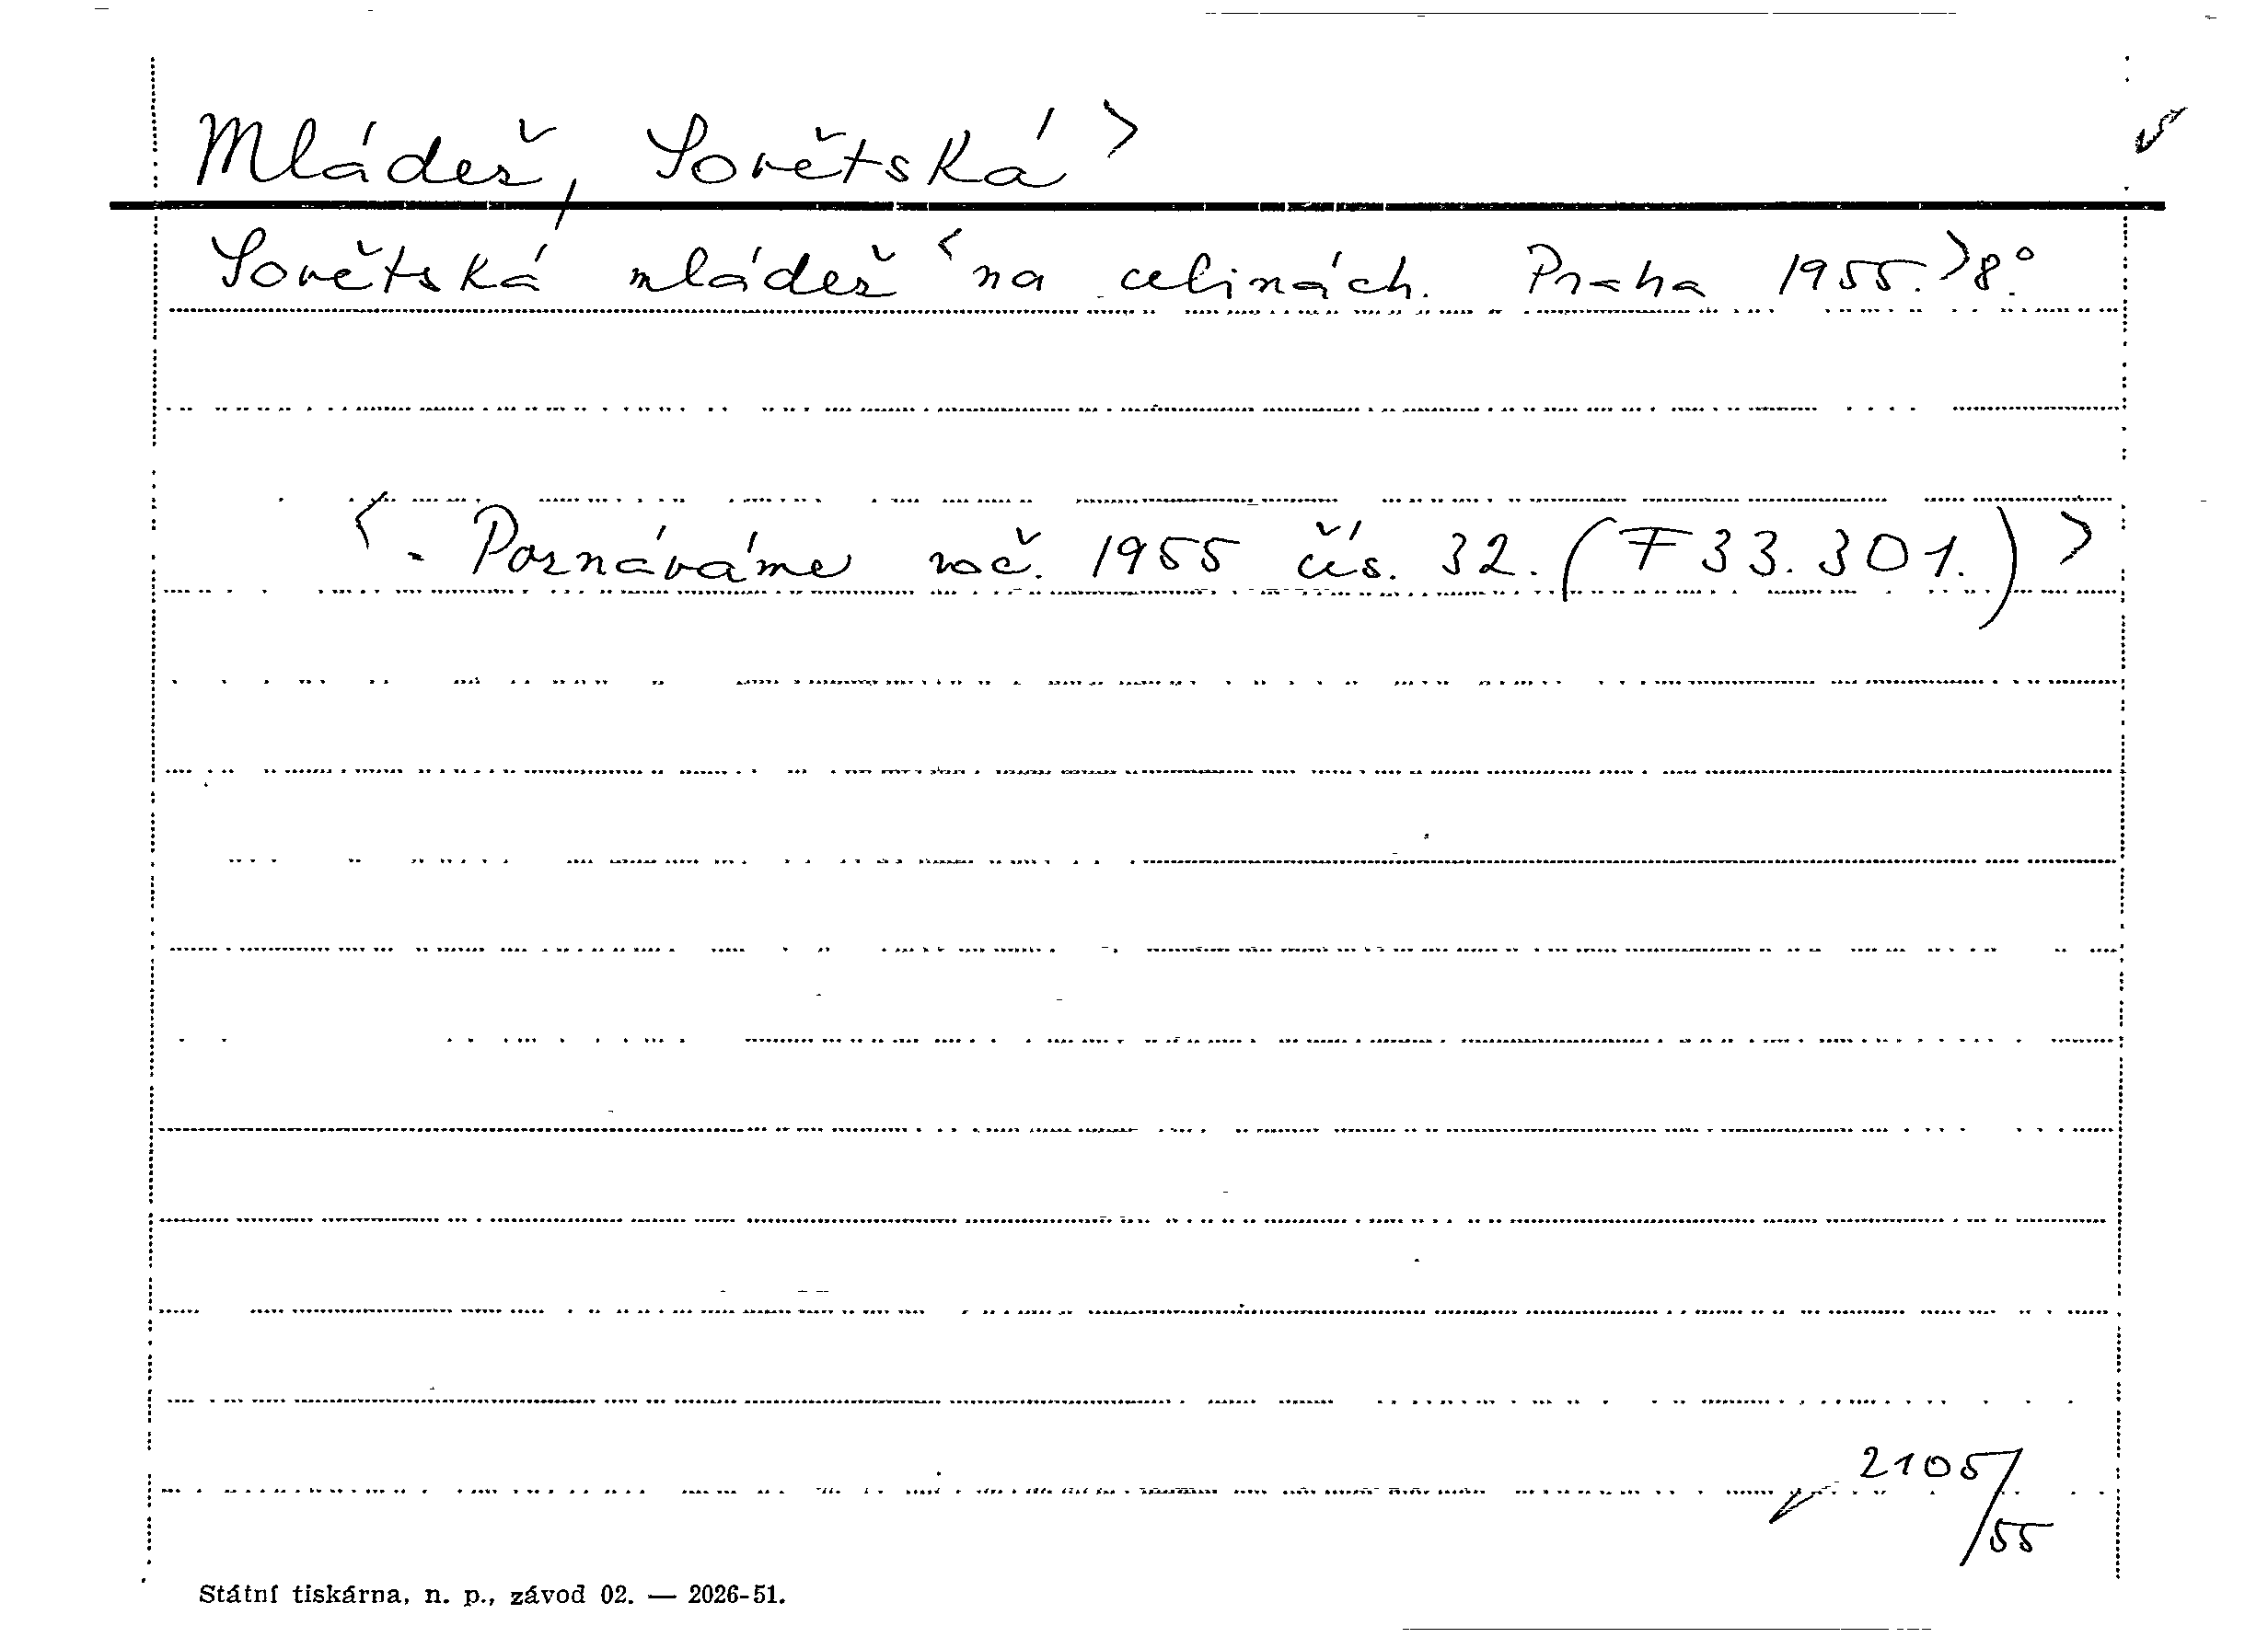 Mládež, Sovětská >
Sovětská mládež < na celinách. Praha 1955. > 8.°
< - Poznáváme roč. 1955 čís. 32. (F 33.301.) >
2105/55
Státní tiskárna, n. p., závod 02. — 2026-51.